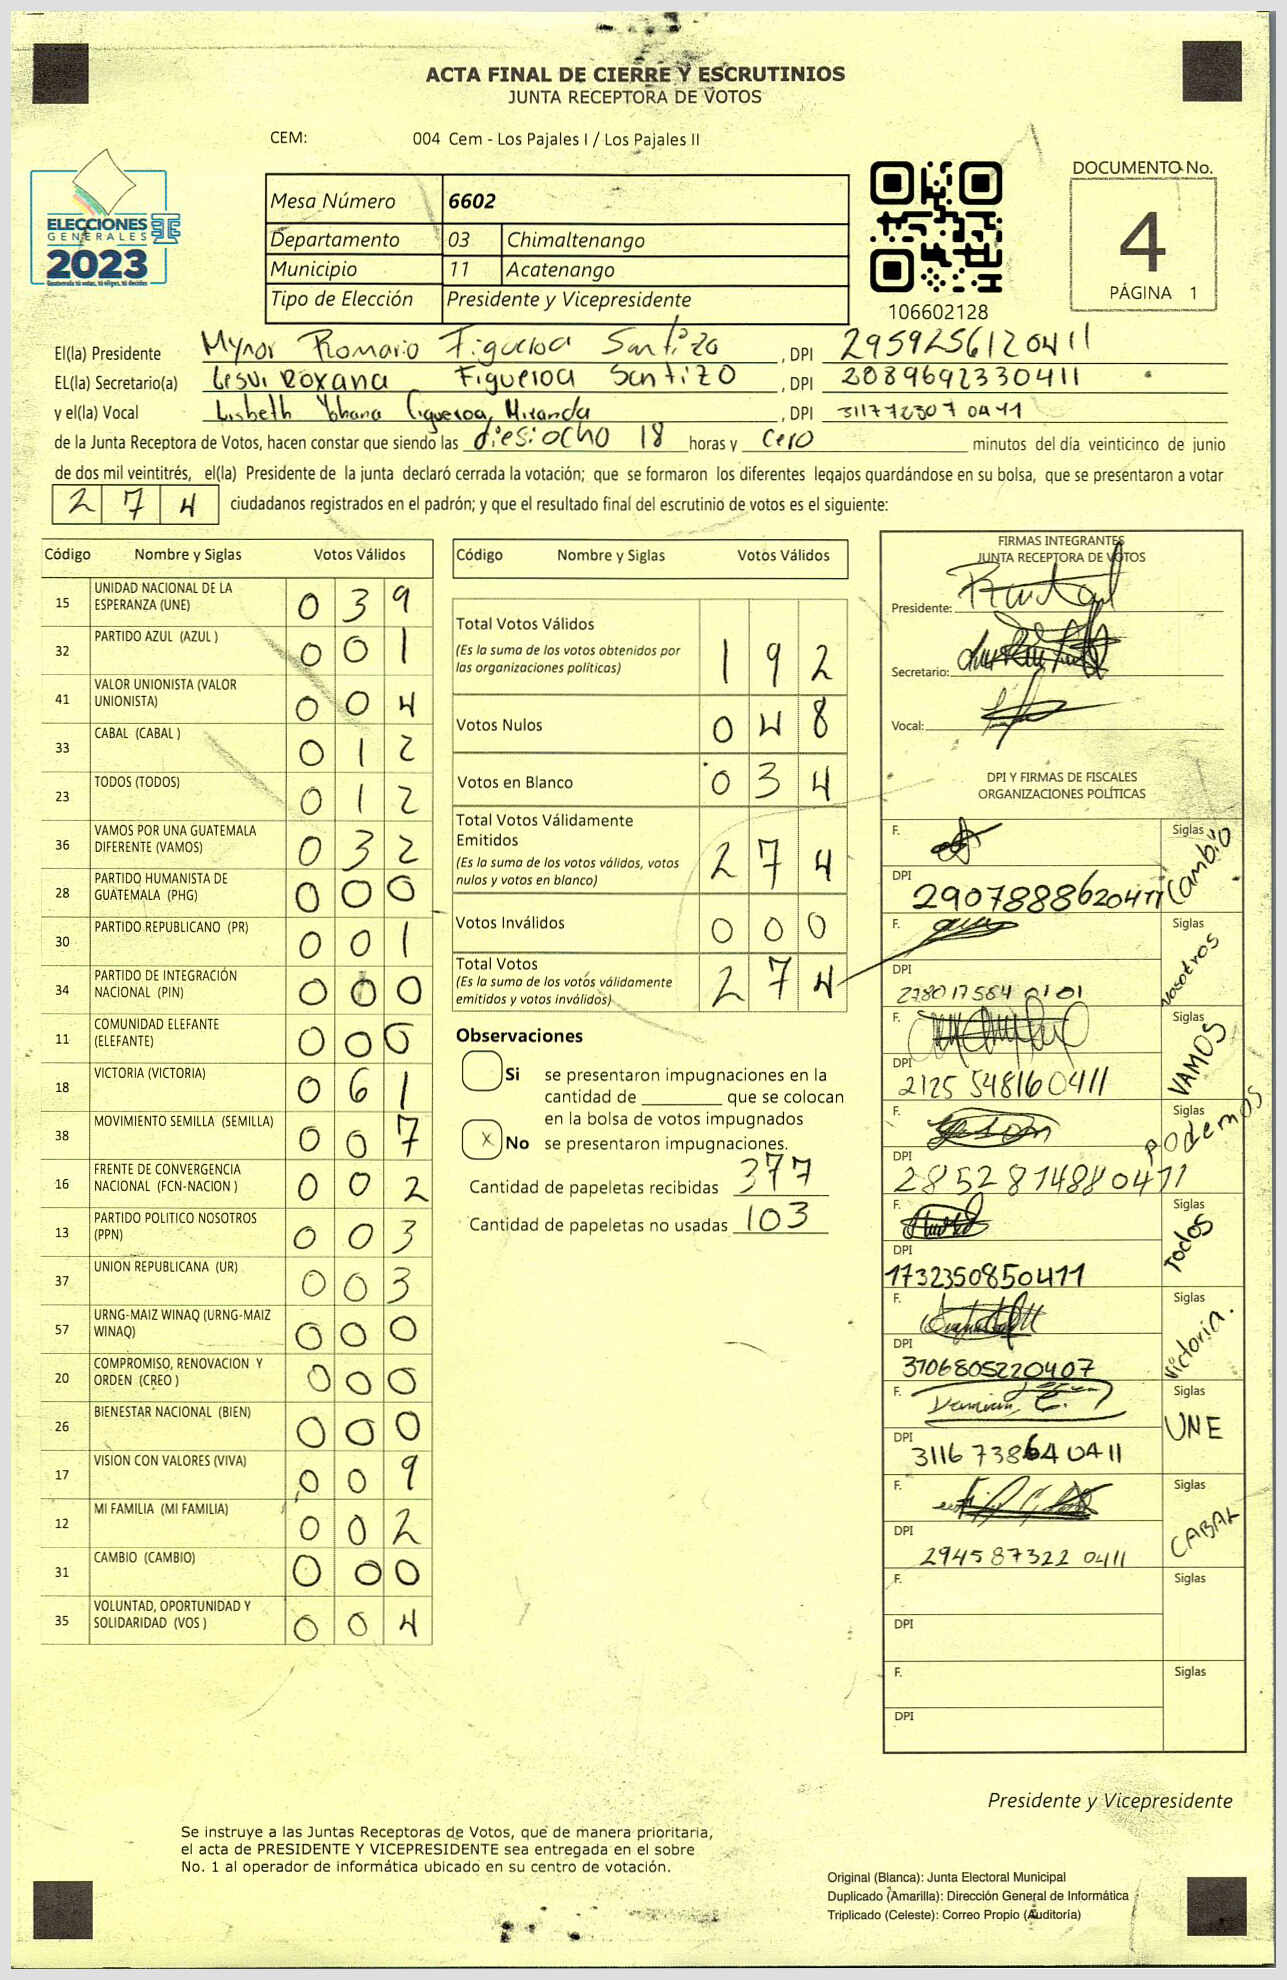 ACTA FINAL DE CIERRE Y ESCRUTINIOS
JUNTA RECEPTORA DE VOTOS
CEM: 004 Cem - Los Pajales I / Los Pajales II
ELECCIONES
GENERALES
2023
Guatemala tú votas, tú eliges, tú decides
Mesa Número 6602
Departamento 03 Chimaltenango
Municipio 11 Acatenango
Tipo de Elección Presidente y Vicepresidente
106602128
DOCUMENTO No.
4
PÁGINA 1
El(la) Presidente Mynor Romario Figueroa Santizo, DPI 2959256120411
EL(la) Secretario(a) Lesvi Roxana Figueroa Santizo, DPI 2089692330411
y el(la) Vocal Lisbeth Yohana Figueroa Miranda, DPI 3117723070411
de la Junta Receptora de Votos, hacen constar que siendo las diesiocho 18 horas y cero minutos del día veinticinco de junio
de dos mil veintitrés, el(la) Presidente de la junta declaró cerrada la votación; que se formaron los diferentes legajos quardándose en su bolsa, que se presentaron a votar
274 ciudadanos registrados en el padrón; y que el resultado final del escrutinio de votos es el siguiente:
Código Nombre y Siglas Votos Válidos
15 UNIDAD NACIONAL DE LA ESPERANZA (UNE) 039
32 PARTIDO AZUL (AZUL ) 001
41 VALOR UNIONISTA (VALOR UNIONISTA) 004
33 CABAL (CABAL ) 012
23 TODOS (TODOS) 012
36 VAMOS POR UNA GUATEMALA DIFERENTE (VAMOS) 032
28 PARTIDO HUMANISTA DE GUATEMALA (PHG) 000
30 PARTIDO REPUBLICANO (PR) 001
34 PARTIDO DE INTEGRACIÓN NACIONAL (PIN) 000
11 COMUNIDAD ELEFANTE (ELEFANTE) 000
18 VICTORIA (VICTORIA) 061
38 MOVIMIENTO SEMILLA (SEMILLA) 007
16 FRENTE DE CONVERGENCIA NACIONAL (FCN-NACION ) 002
13 PARTIDO POLITICO NOSOTROS (PPN) 003
37 UNION REPUBLICANA (UR) 003
57 URNG-MAIZ WINAQ (URNG-MAIZ WINAQ) 000
20 COMPROMISO, RENOVACION Y ORDEN (CREO ) 000
26 BIENESTAR NACIONAL (BIEN) 000
17 VISION CON VALORES (VIVA) 009
12 MI FAMILIA (MI FAMILIA) 002
31 CAMBIO (CAMBIO) 000
35 VOLUNTAD, OPORTUNIDAD Y SOLIDARIDAD (VOS ) 004
Código Nombre y Siglas Votos Válidos
Total Votos Válidos 192
(Es la suma de los votos obtenidos por
las organizaciones políticas)
Votos Nulos 048
Votos en Blanco 034
Total Votos Válidamente
Emitidos 274
(Es la suma de los votos válidos, votos
nulos y votos en blanco)
Votos Inválidos 000
Total Votos 274
(Es la suma de los votos válidamente
emitidos y votos inválidos)
Observaciones
Si se presentaron impugnaciones en la
cantidad de ________ que se colocan
en la bolsa de votos impugnados
X No se presentaron impugnaciones.
Cantidad de papeletas recibidas 377
Cantidad de papeletas no usadas 103
FIRMAS INTEGRANTES
JUNTA RECEPTORA DE VOTOS
Presidente:
Secretario:
Vocal:
DPI Y FIRMAS DE FISCALES
ORGANIZACIONES POLÍTICAS
F. Siglas Cambio
DPI 2907888620411
F. Siglas Nosotros
DPI 2780175840101
F. Siglas VAMOS
DPI 2125548160411
F. Siglas Podemos
DPI 28528714880411
F. Siglas Todos
DPI 1732350850411
F. Siglas Victoria.
DPI 3106805220407
F. Siglas UNE
DPI 3116738640411
F. Siglas CABAL
DPI 2945873220411
F. Siglas
DPI
F. Siglas
DPI
Presidente y Vicepresidente
Se instruye a las Juntas Receptoras de Votos, que de manera prioritaria,
el acta de PRESIDENTE Y VICEPRESIDENTE sea entregada en el sobre
No. 1 al operador de informática ubicado en su centro de votación.
Original (Blanca): Junta Electoral Municipal
Duplicado (Amarilla): Dirección General de Informática
Triplicado (Celeste): Correo Propio (Auditoría)